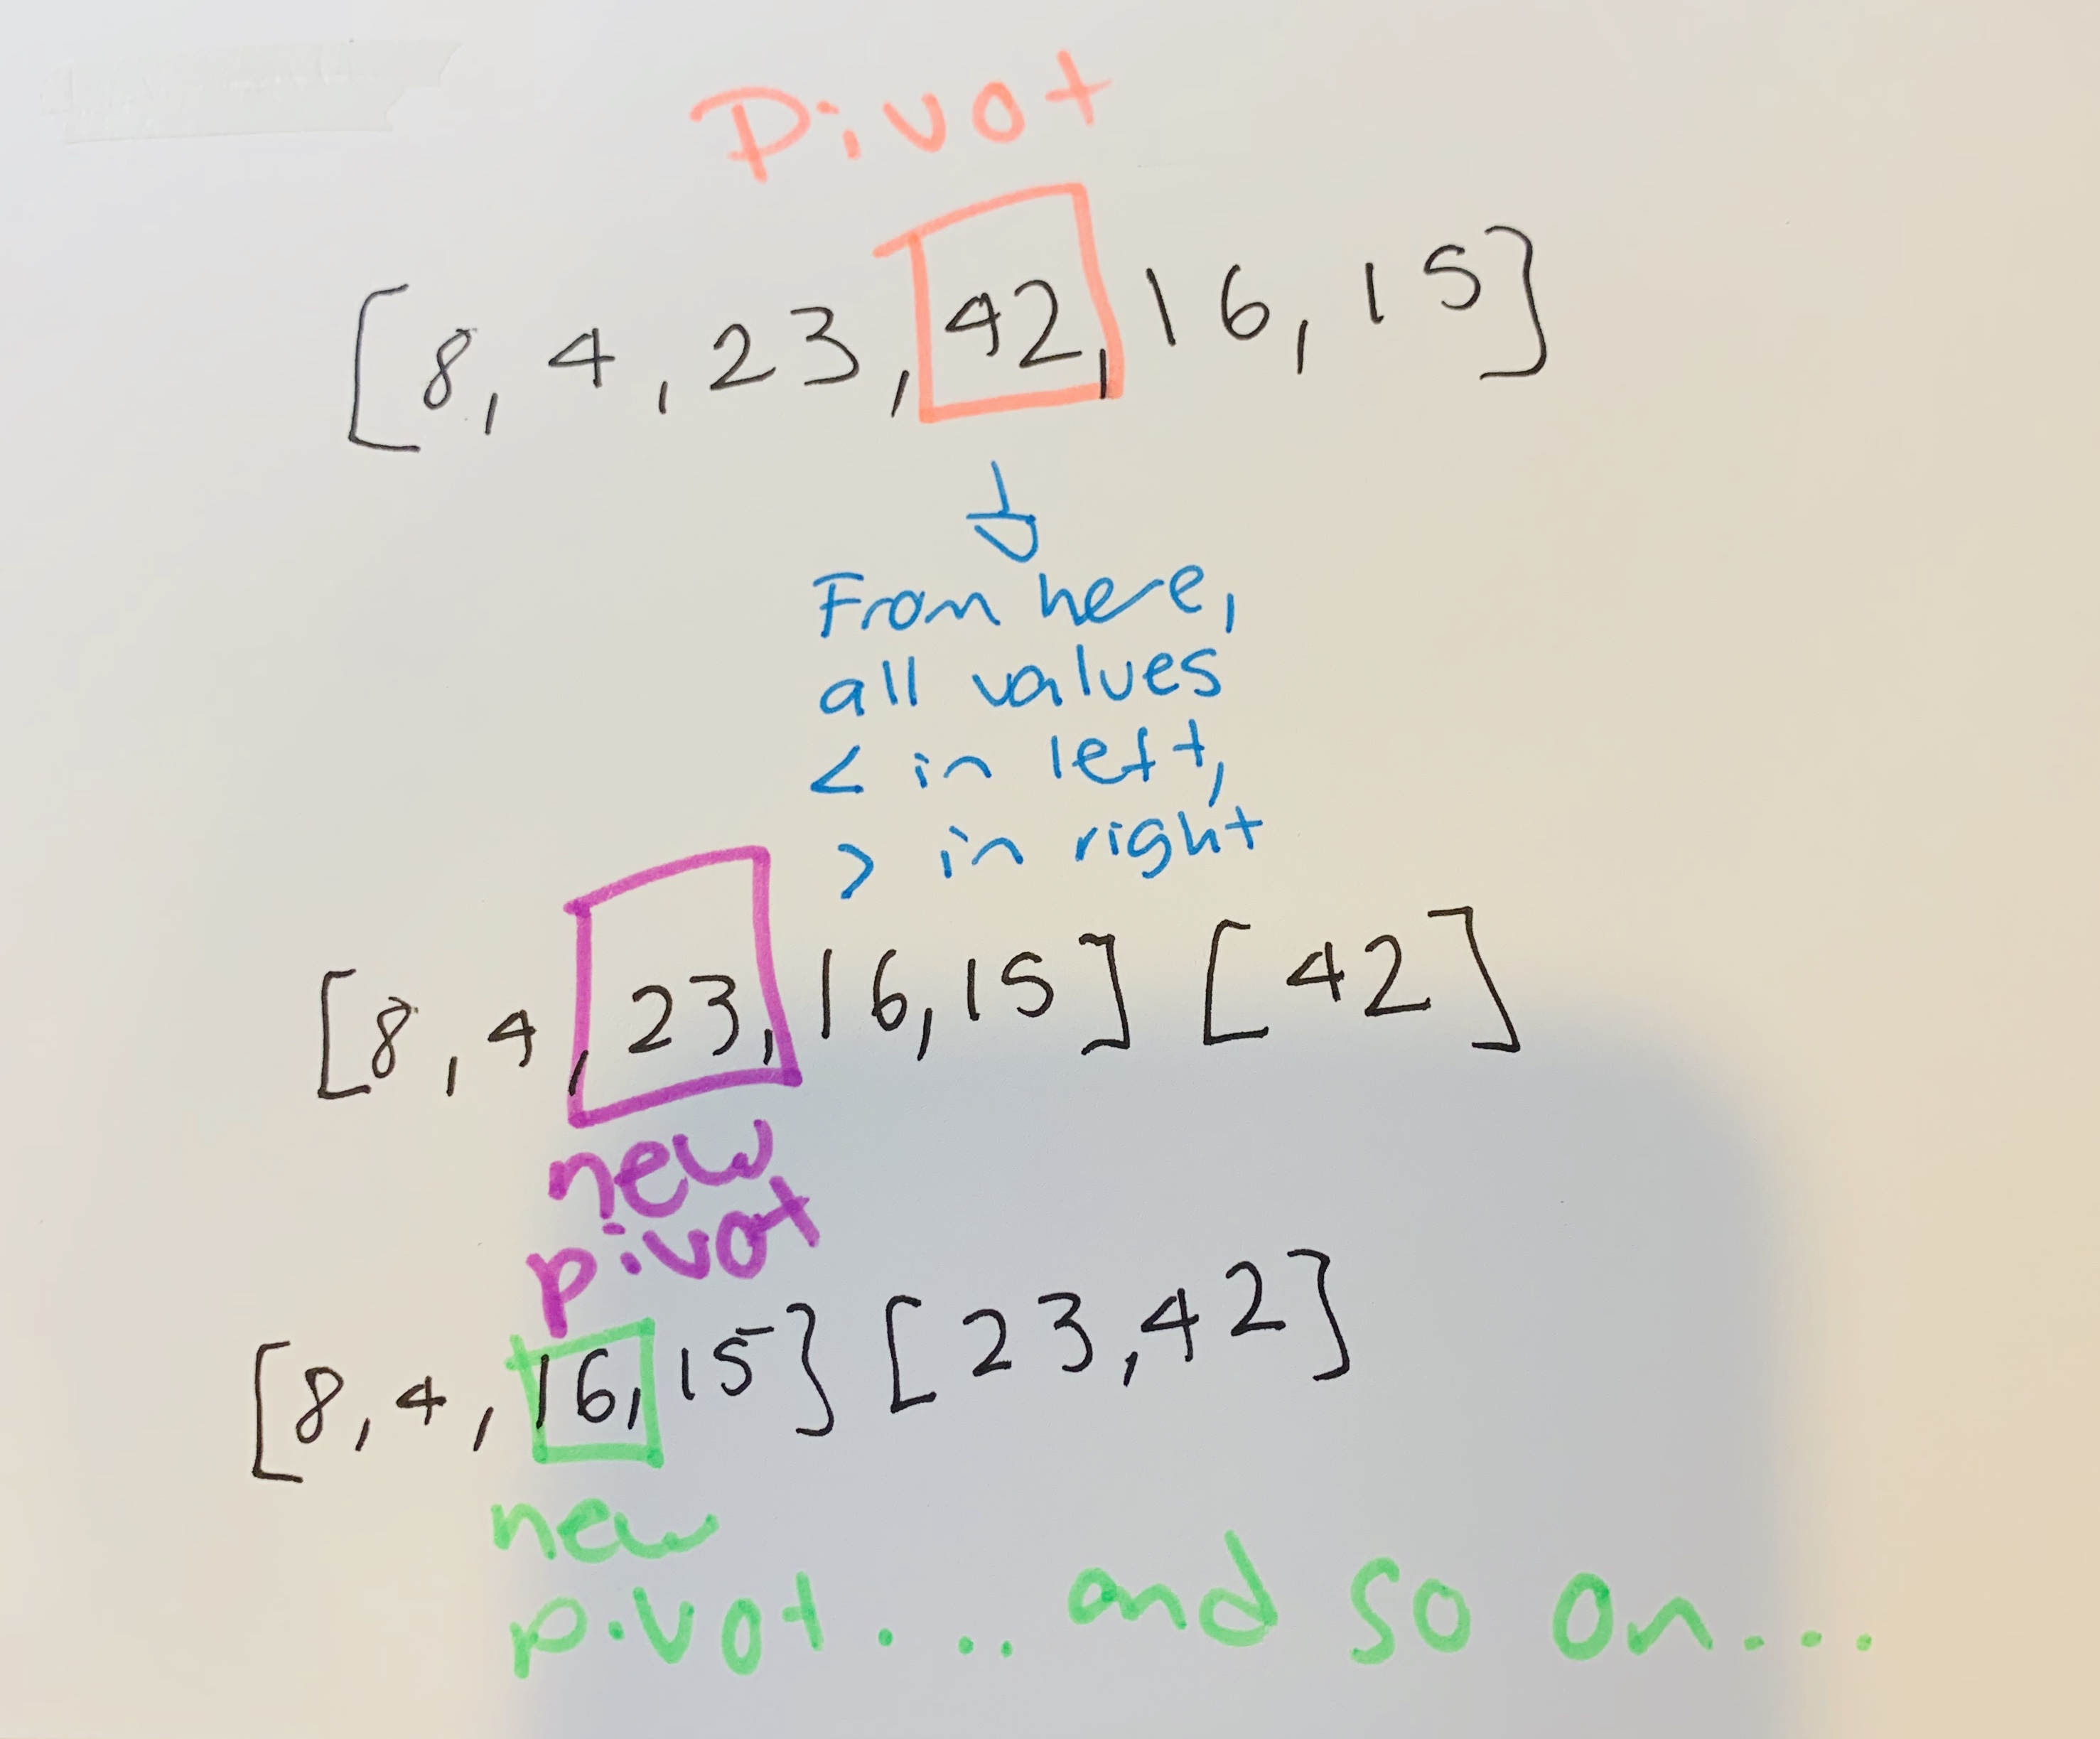 Pivot
[8, 4, 23, 42, 16, 15]
From here,
all values
< in left,
> in right
[8, 4, 23, 16, 15] [42]
new
pivot
[8, 4, 16, 15] [23, 42]
new
pivot... and so on...